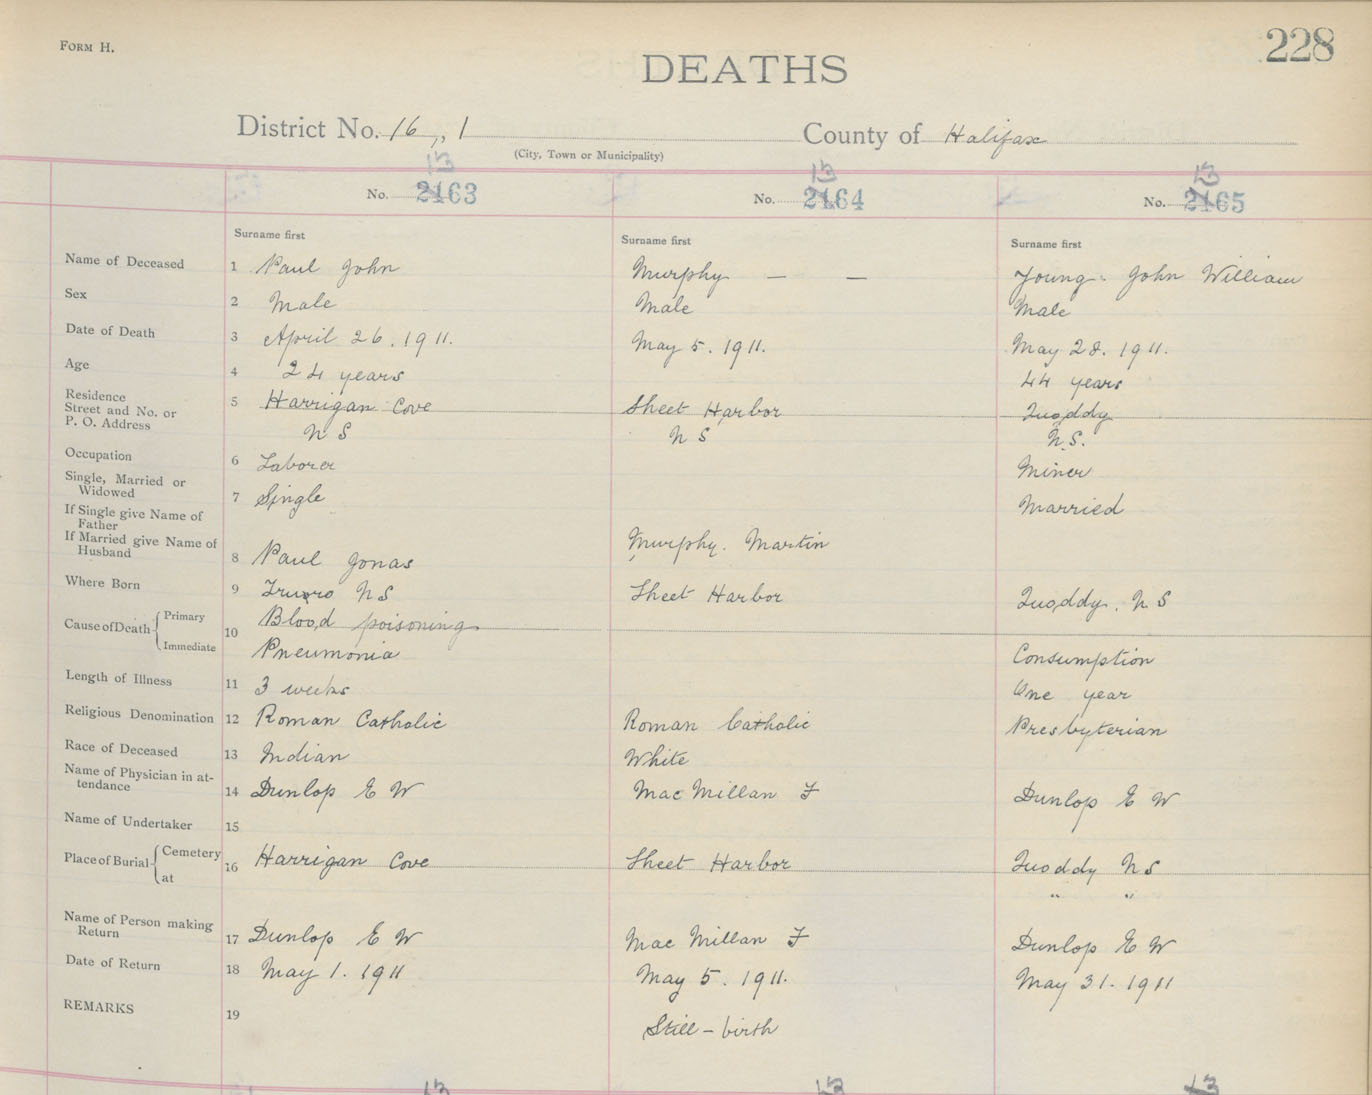 FORM H.
228
DEATHS
District No. 16,, 1 County of Halifax
(City, Town or Municipality)
13 13 13
No. 2163 No. 2164 No. 2165
Surname first Surname first Surname first
Name of Deceased 1 Paul John Murphy — — Young John William
Sex 2 Male Male Male
Date of Death 3 April 26. 1911. May 5. 1911. May 28. 1911.
Age 4 24 years 44 years
Residence
Street and No. or 5 Harrigan Cove Sheet Harbor Quoddy
P. O. Address N S N S N.S.
Occupation 6 Laborer Miner
Single, Married or
Widowed 7 Single Married
If Single give Name of
Father
If Married give Name of
Husband 8 Paul Jonas Murphy. Martin
Where Born 9 Truro N S Sheet Harbor Quoddy. N S
Cause of Death Primary 10 Blood poisoning
Immediate Pneumonia Consumption
Length of Illness 11 3 weeks One year
Religious Denomination 12 Roman Catholic Roman Catholic Presbyterian
Race of Deceased 13 Indian White
Name of Physician in at-
tendance 14 Dunlop E W Mac Millan F Dunlop E W
Name of Undertaker 15
Place of Burial Cemetery 16 Harrigan Cove Sheet Harbor Quoddy N S
at " "
Name of Person making
Return 17 Dunlop E W Mac Millan F Dunlop E W
Date of Return 18 May 1. 1911 May 5. 1911. May 31. 1911
REMARKS 19 Still – birth
13 13 13